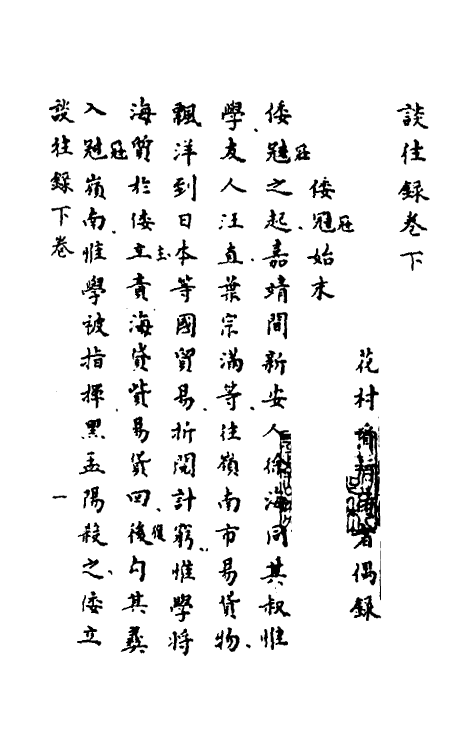 談往錄卷下
花村看行侍者偶錄
倭冦始末
倭冦之起嘉靖間新安人徐海同其叔惟
學友人汪直葉宗滿等往嶺南市易貨物
飄洋到日本等國貿易折閱計窮惟學將
海質於倭立責海貸貲易貨回後勾其彝
入冦嶺南惟學被指揮黑孟陽殺之倭立
談往錄下卷 一